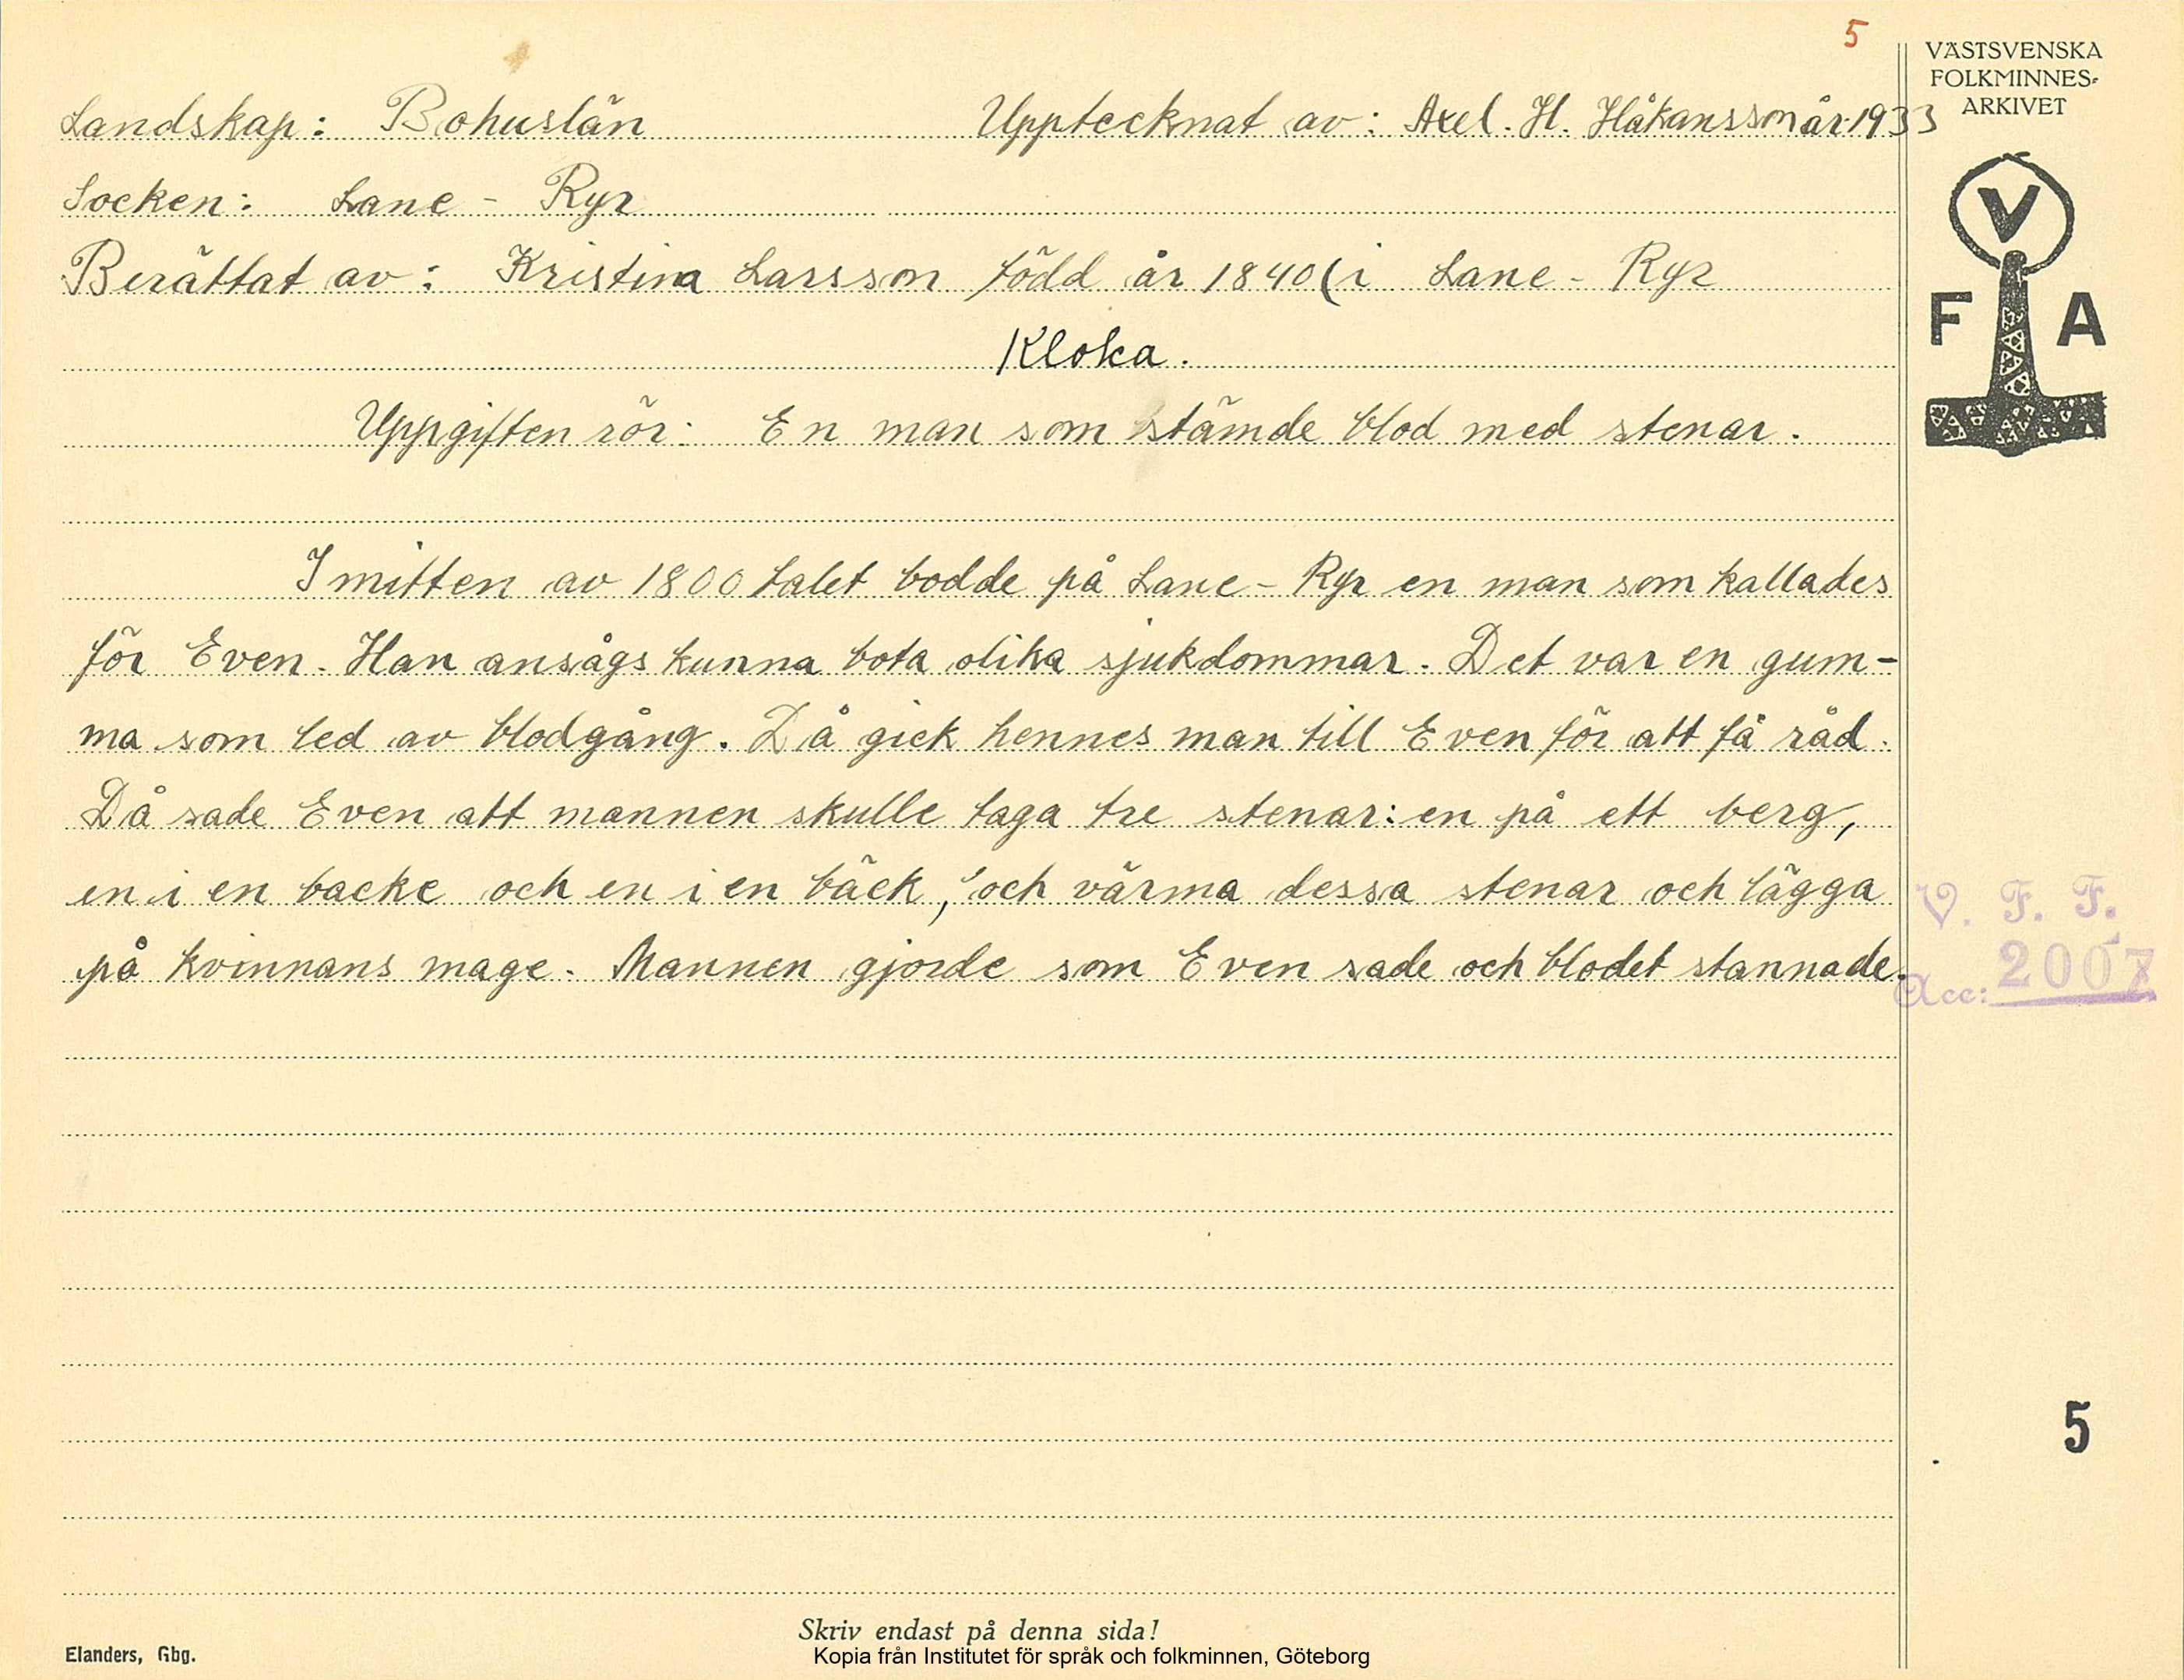 5
VÄSTSVENSKA
FOLKMINNES-
ARKIVET
V
F A
Landskap: Bohuslän Upptecknat av: Axel. H. Håkansson år 1933
Socken: Lane - Ryr
Berättat av: Kristina Larsson född år 1840 (i Lane - Ryr
Kloka.
Uppgiften rör: En man som stämde blod med stenar.
I mitten av 1800 talet bodde på Lane - Ryr en man som kallades
för Even. Han ansågs kunna bota olika sjukdommar. Det var en gum-
ma som led av blodgång. Då gick hennes man till Even för att få råd.
Då sade Even att mannen skulle taga tre stenar: en på ett berg,
en i en backe och en i en bäck, och värma dessa stenar och lägga
på kvinnans mage. Mannen gjorde som Even sade och blodet stannade.
V. F. F.
Acc: 2007
5
Skriv endast på denna sida!
Elanders, Gbg.
Kopia från Institutet för språk och folkminnen, Göteborg